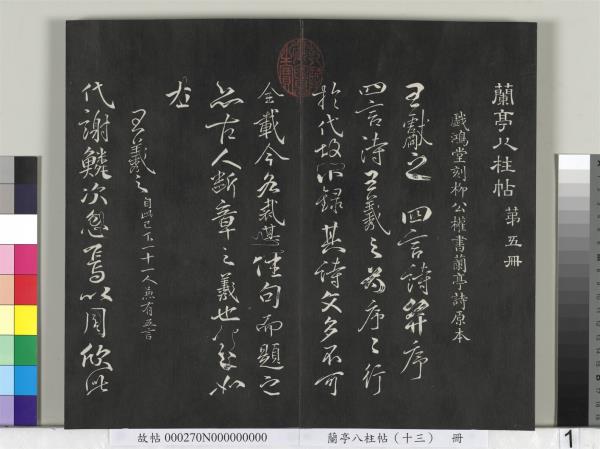 蘭亭八柱帖 第五冊
戲鴻堂刻柳公權書蘭亭詩原本
王獻之 四言詩并序
四言詩王羲之為序序行
於代故不錄其詩文多不可
全載今各裁其佳句而題之
亦古人斷章之義也
王羲之 自此已下十一人兼有五言
代謝鱗次忽焉以周欣此
故帖 000270N000000000 蘭亭八柱帖(十三) 冊
1